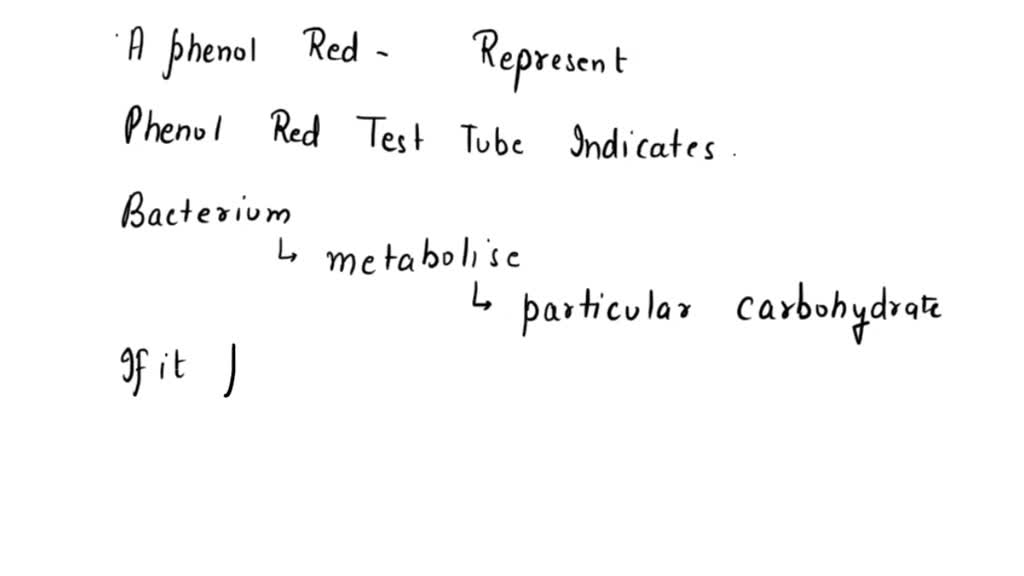 A phenol Red - Represent
Phenol Red Test Tube Indicates.
Bacterium
↳ metabolise
↳ particular carbohydrate
If it